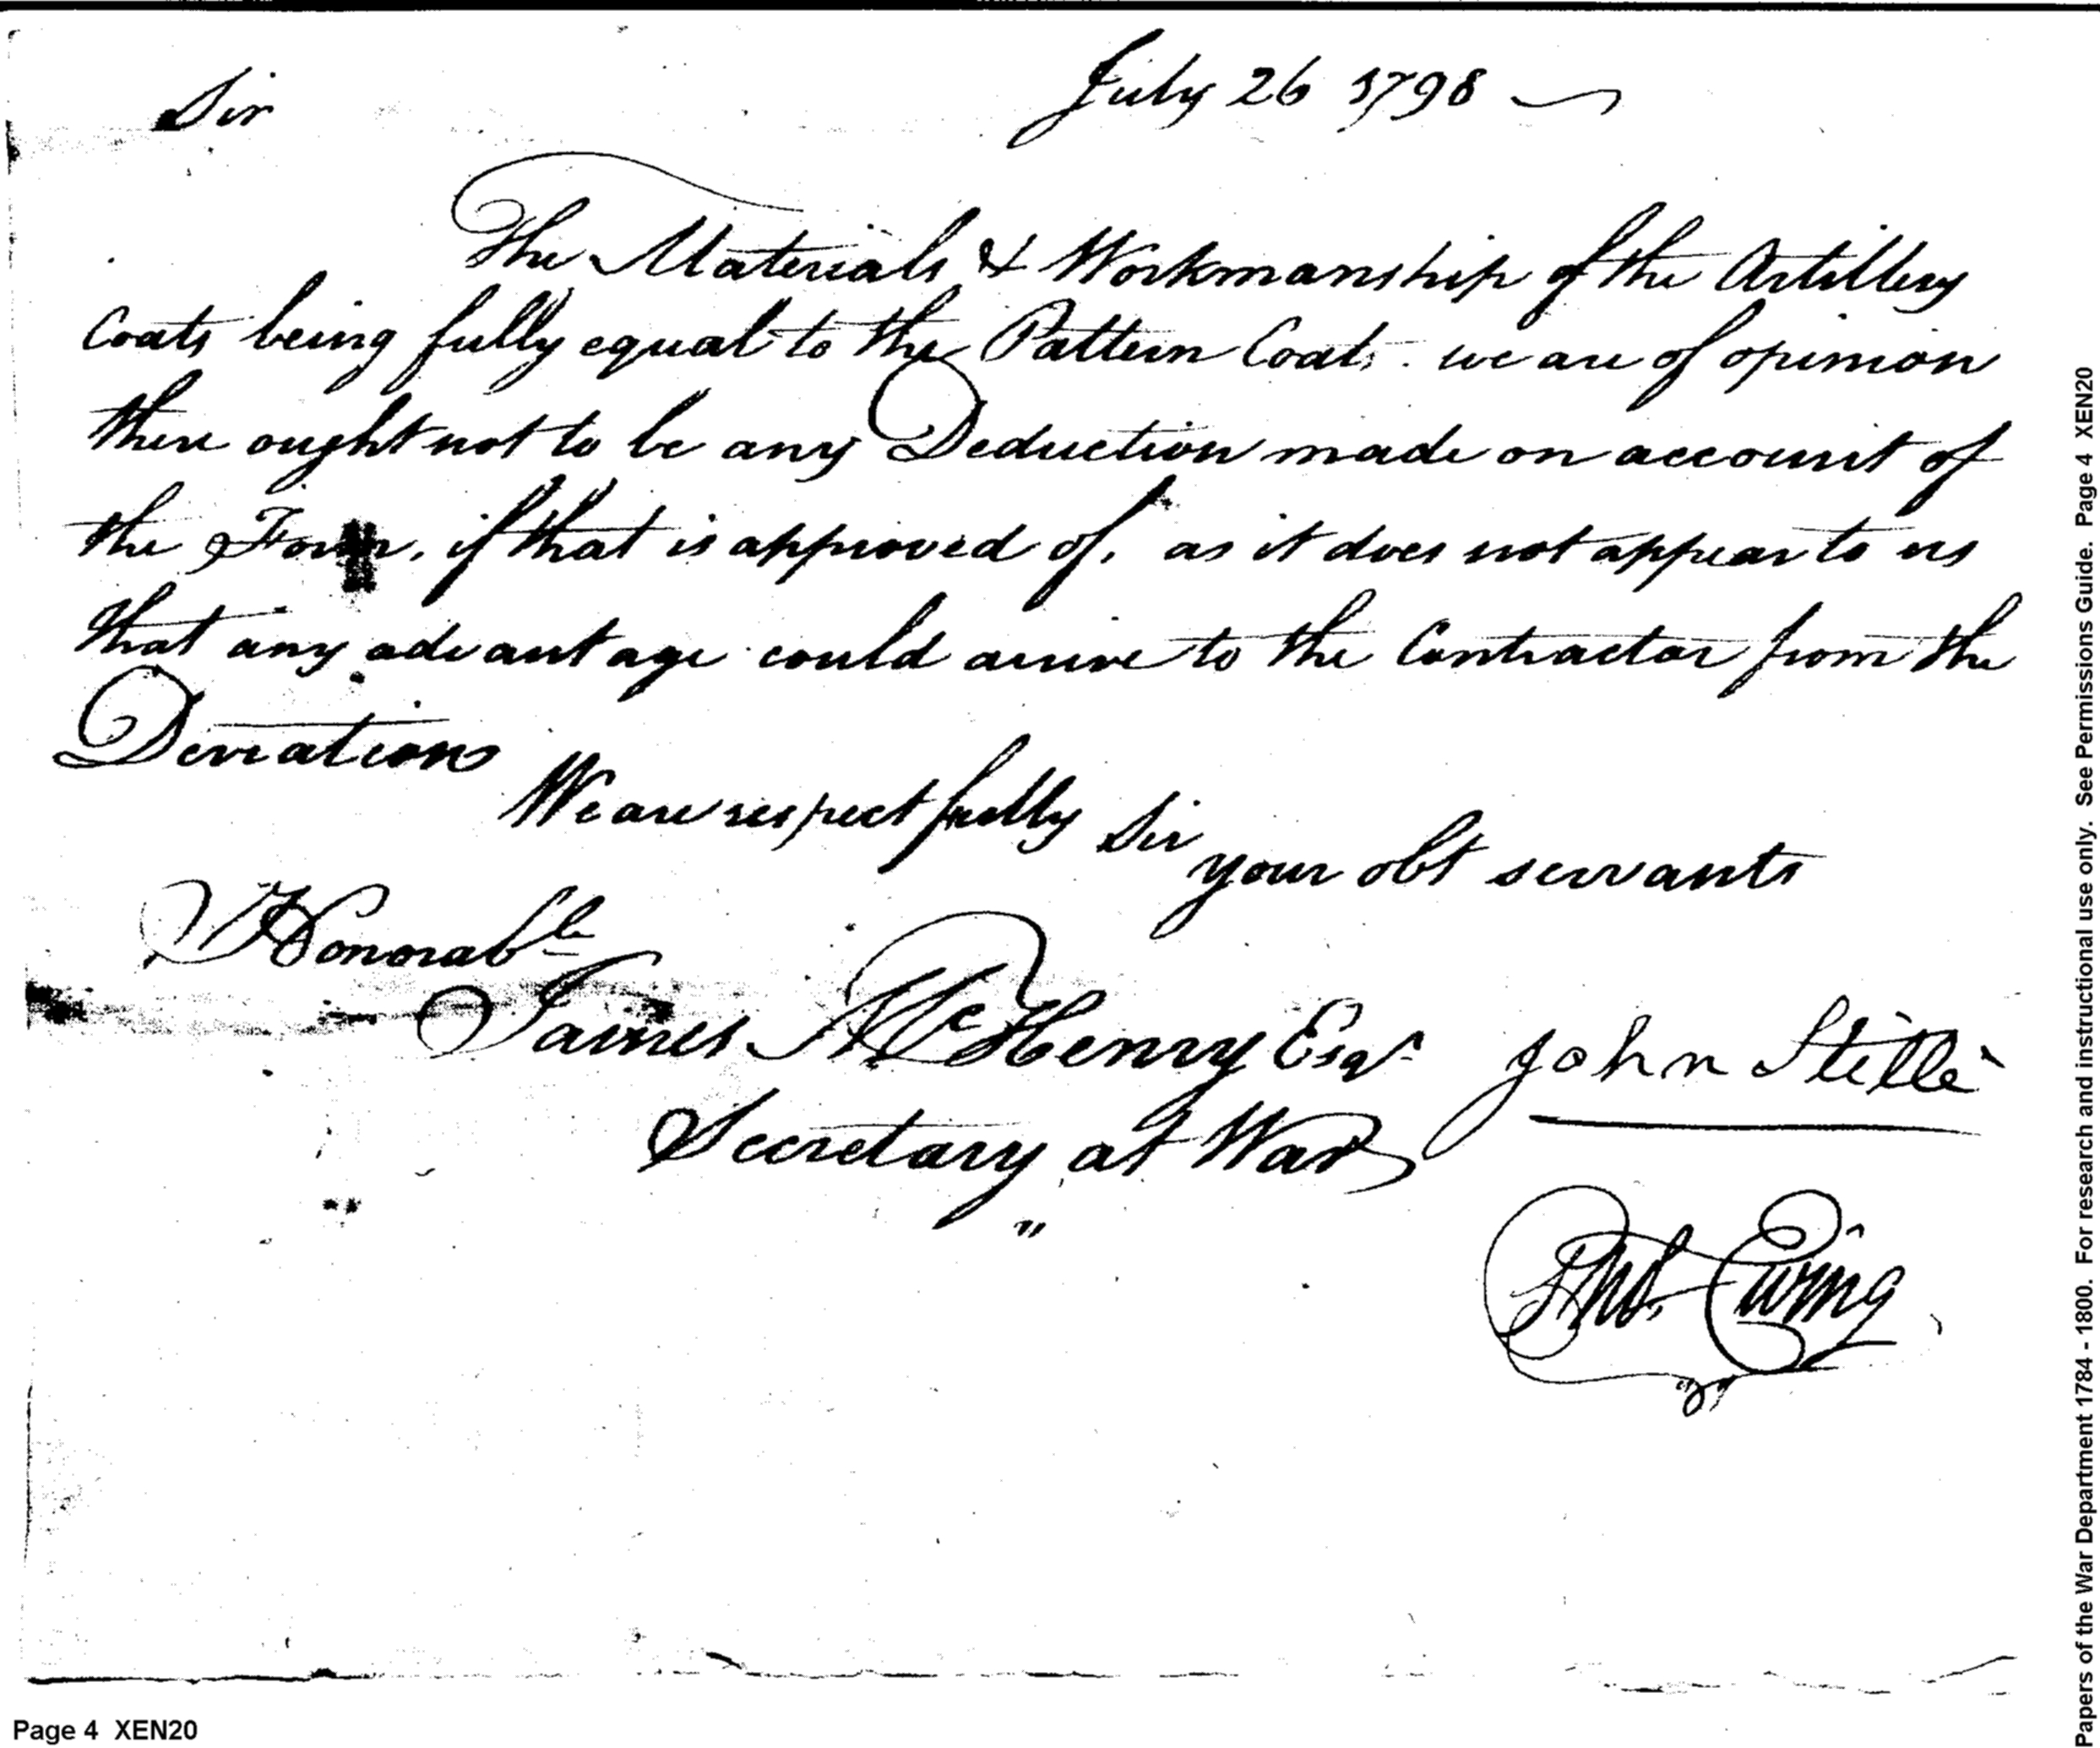 Sir
July 26 1798
The Materials & Workmanship of the Artillery
Coats being fully equal to the Pattern Coats. we are of opinion
there ought not to be any Deduction made on account of
the Form, if that is approved of, as it does not appear to us
that any advantage could arrive to the Contractor from the
Deviation
We are respectfully Sir
your obt servants
Honorable
James McHenry Esqr
Secretary at War
"
John Stillé
Thos. Ewing
Page 4 XEN20
Papers of the War Department 1784 - 1800. For research and instructional use only. See Permissions Guide. Page 4 XEN20